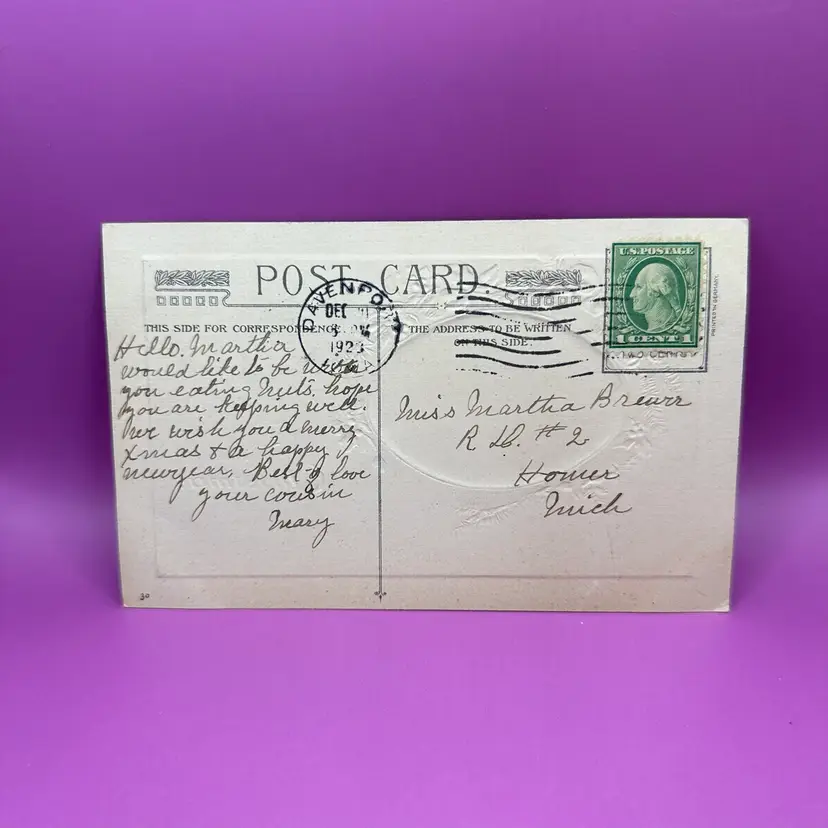 POST CARD.
DAVENPORT
DEC
PM
192
THIS SIDE FOR CORRESPONDENCE
THE ADDRESS TO BE WRITTEN
ON THIS SIDE.
U.S. POSTAGE
1 CENT 1
TWO CENTS
PRINTED IN GERMANY.
Hello. Martha
would like to be with
you eating Nuts. hope
you are keeping well.
we wish you a merry
xmas & a happy
newyear. Best of love
your cousin
Mary
Miss Martha Brewer
R D. # 2
Homer
Mich
30